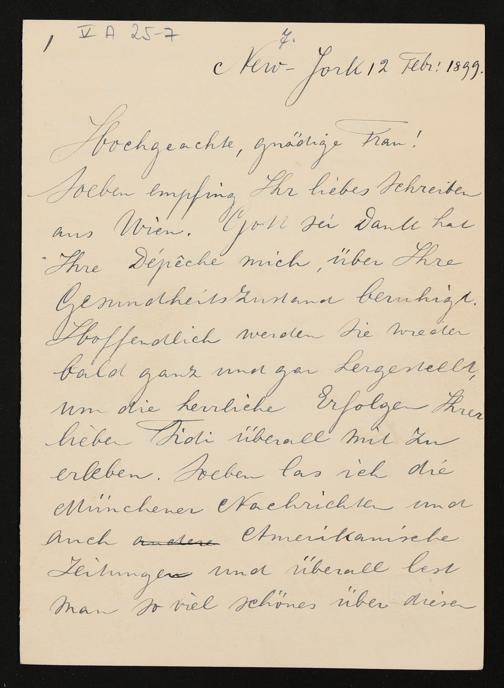 1 V A 25-7 7.
New-York 12 Febr: 1899.
Hochgeachte, gnädige Frau!
Soeben empfing Ihr liebes Schreiben
aus Wien. Gott sei Dank hat
Ihre Dépêche mich, über Ihre
Gesundheitszustand beruhigt.
Hoffendlich werden Sie wieder
bald ganz und gar hergestellt,
um die herrliche Erfolgen Ihrer
lieben Fidi überall mit zu
erleben. Soeben las ich die
Münchener Nachrichten und
auch andere Amerikanische
Zeitungen und überall lest
man so viel schönes über diesen